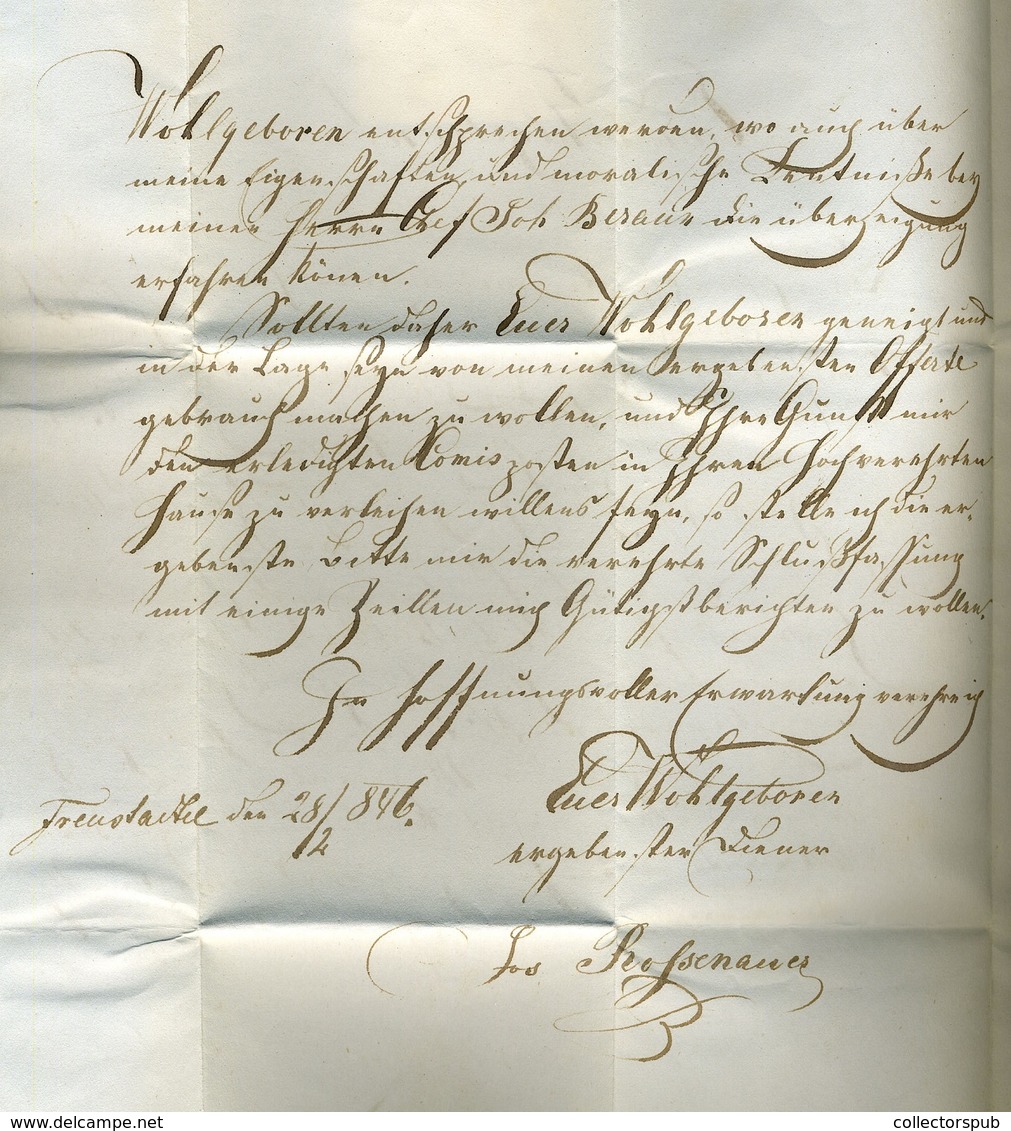 Wohlgeboren entschprechen werden, wo auch über
meine Eigenschaften, und moralische Kentniße bey
meinen Herrn Chef Joh Beraun die überzeigung
erfahren könen.
Sollten daher Euer Wohlgeboren geneigt und
in der Lage seyn von meinen ergebensten Offerte
gebrauch machen zu wollen, und Ihre Gunst mir
den erledigten Comis posten in Ihren Hochverehrten
Hause zu verleihen willens seyn, so stelle ich die er-
gebenste Bitte mir die verehrte Schlußfassung
mit einige Zeillen mich Gütigst berichten zu wollen.
In hoffnungsvoller Erwartung verehre ich
Euer Wohlgeboren
Freustadtel den 28/12 846.
ergebenster Diener
Jos Rossenauer
www.delcampe.net
collectorspub